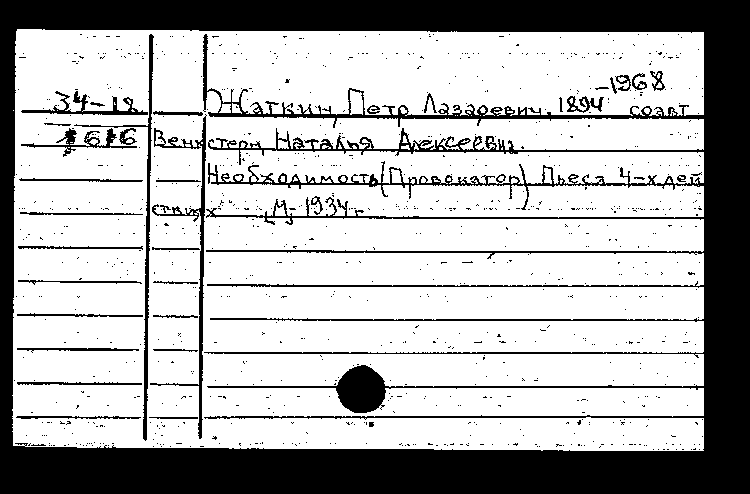 -1968
34-18 Жаткин, Петр Лазаревич, 1894 соавт
1616 Венкстерн, Наталья Алексеевна.
Необходимость (Провокатор) Пьеса 4-х дей
ствиях [М] 1934 г.